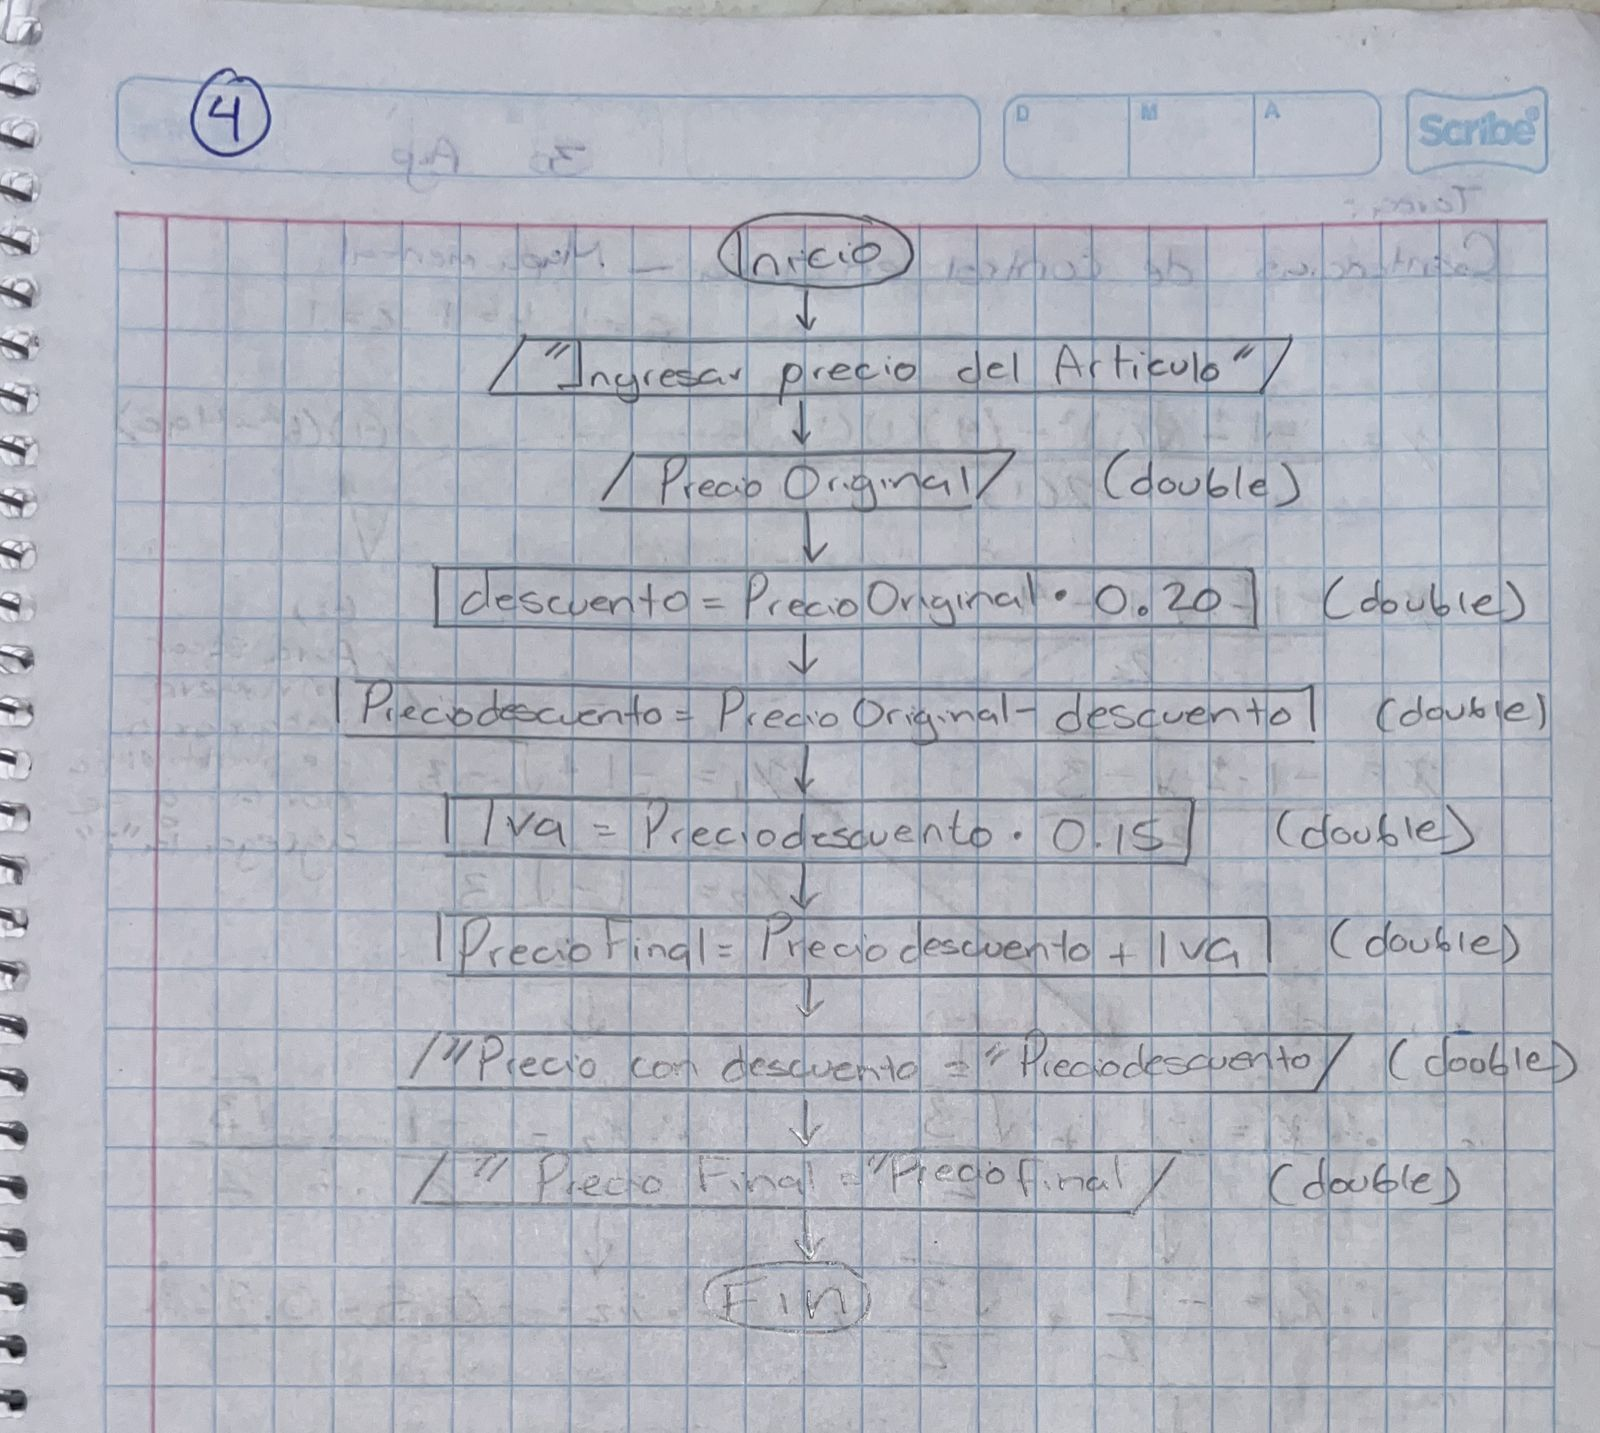 4
D M A
Scribe®
Inicio
"Ingresar precio del Articulo"
Precio Original (double)
descuento = Precio Original • 0.20 (double)
Preciodescuento = Precio Original - descuento (double)
Iva = Preciodescuento • 0.15 (double)
Precio Final = Precio descuento + Iva (double)
"Precio con descuento = " Preciodescuento (dooble)
" Precio Final = " Precio final (double)
Fin